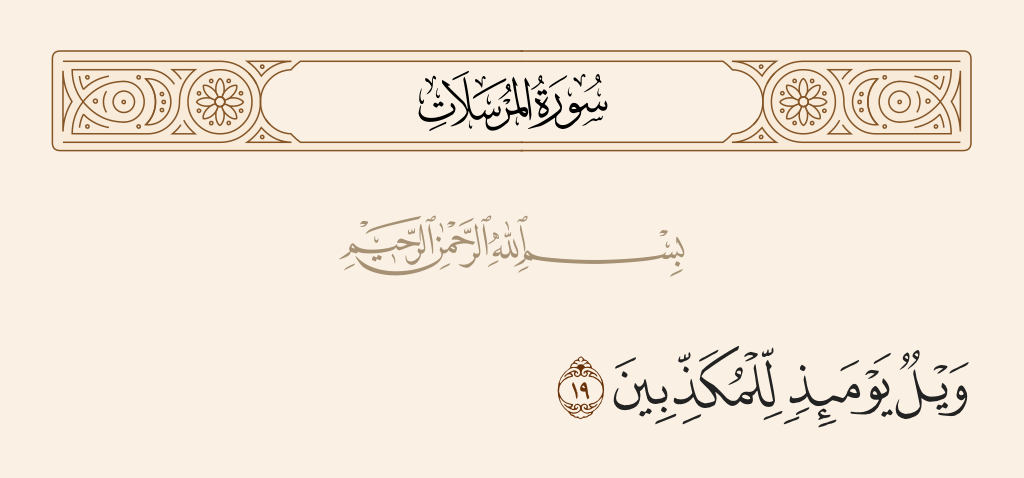 سُورَةُ المُرْسَلَاتِ
بِسْمِ ٱللَّهِ ٱلرَّحْمَٰنِ ٱلرَّحِيمِ
وَيْلٌ يَوْمَئِذٍ لِّلْمُكَذِّبِينَ ١٩